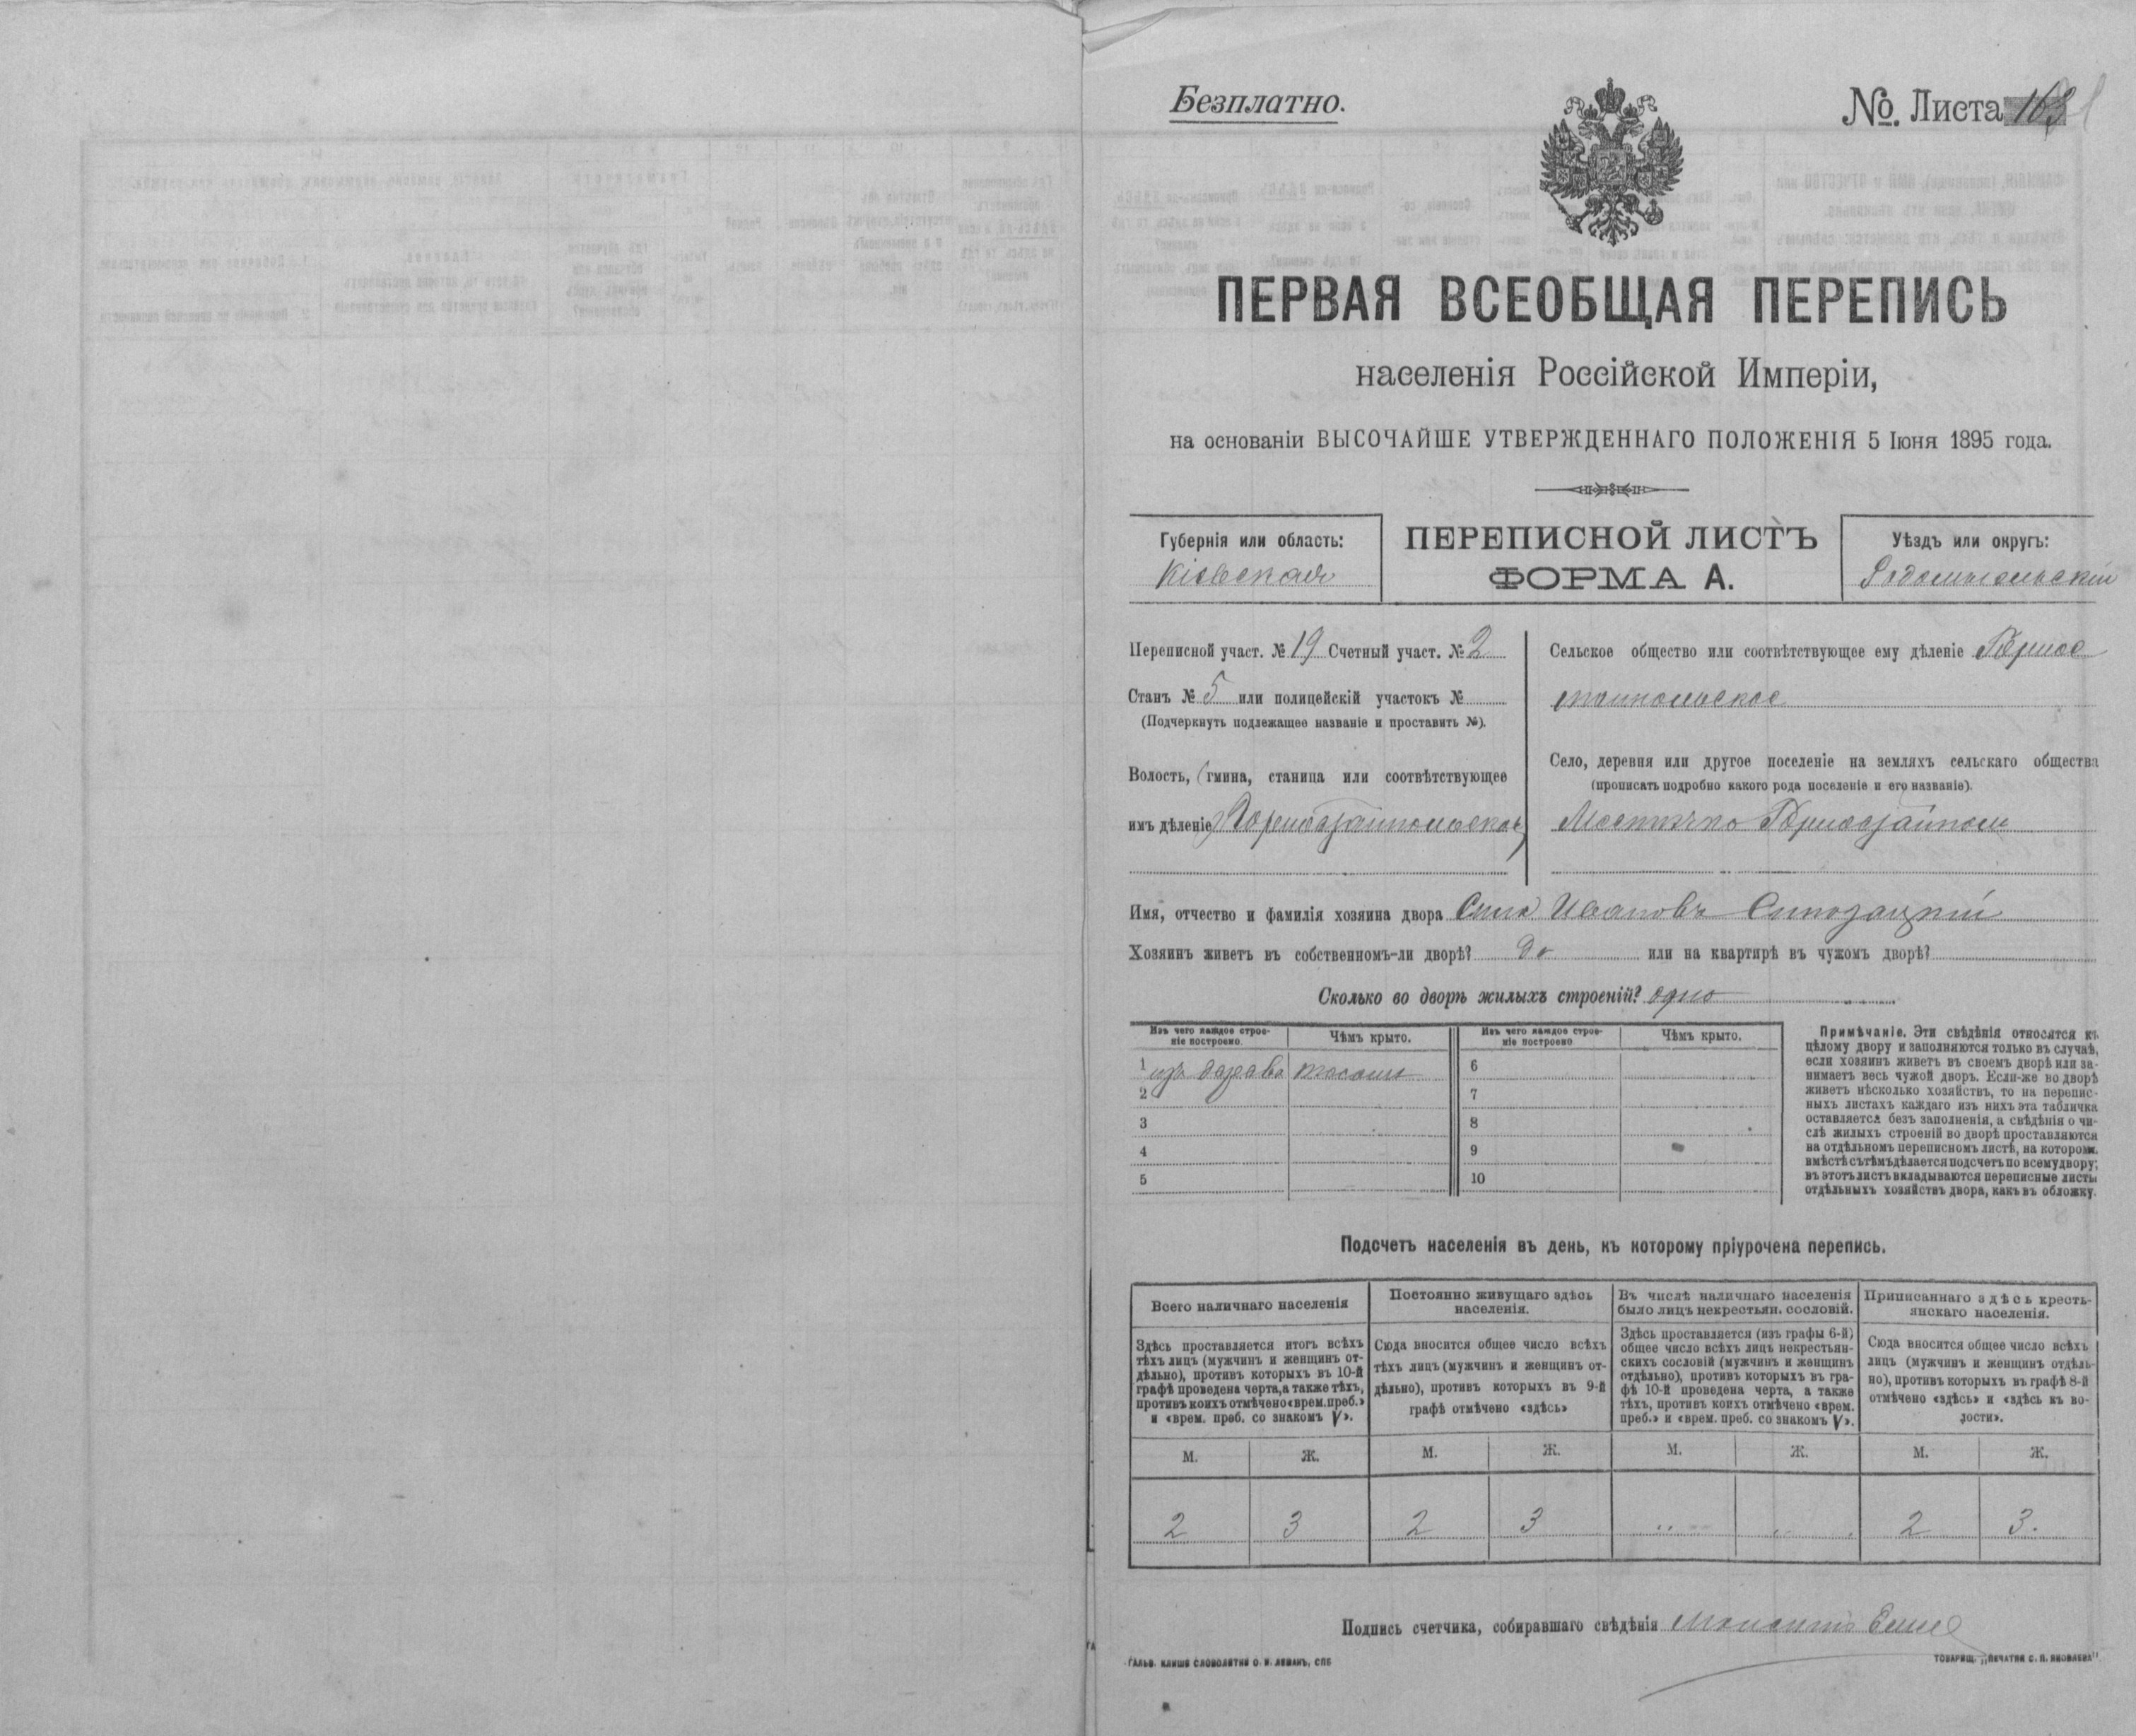 Безплатно.
№. Листа 163
ПЕРВАЯ ВСЕОБЩАЯ ПЕРЕПИСЬ
населенія Россійской Имперіи,
на основаніи ВЫСОЧАЙШЕ УТВЕРЖДЕННАГО ПОЛОЖЕНІЯ 5 Іюня 1895 года.
Губернія или область:
Кіевская
ПЕРЕПИСНОЙ ЛИСТЪ
ФОРМА А.
Уѣздъ или округъ:
Радомысльскій
Переписной участ. № 19 Счетный участ. № 2
Станъ № 5 или полицейскій участокъ №
(Подчеркнуть подлежащее названіе и проставить №).
Волость, (гмина, станица или соотвѣтствующее
имъ дѣленіе)
Сельское общество или соотвѣтствующее ему дѣленіе
Село, деревня или другое поселеніе на земляхъ сельскаго общества
(прописать подробно какого рода поселеніе и его названіе).
Мѣстечко
Имя, отчество и фамилія хозяина двора Ивановъ
Хозяинъ живетъ въ собственномъ-ли дворѣ? да или на квартирѣ въ чужомъ дворѣ?
Сколько во дворѣ жилыхъ строеній? одно
Изъ чего каждое строе-
ніе построено.
Чѣмъ крыто.
Изъ чего каждое строе-
ніе построено
Чѣмъ крыто.
1 изъ дерева
2
3
4
5
6
7
8
9
10
Примѣчаніе. Эти свѣдѣнія относятся къ
цѣлому двору и заполняются только въ случаѣ,
если хозяинъ живетъ въ своемъ дворѣ или за-
нимаетъ весь чужой дворъ. Если-же во дворѣ
живетъ нѣсколько хозяйствъ, то на перепис-
ныхъ листахъ каждаго изъ нихъ эта табличка
оставляется безъ заполненія, а свѣдѣнія о чи-
слѣ жилыхъ строеній во дворѣ проставляются
на отдѣльномъ переписномъ листѣ, на которомъ
вмѣстѣ съ тѣмъ дѣлается подсчетъ по всему двору;
въ этотъ листъ вкладываются переписные листы
отдѣльныхъ хозяйствъ двора, какъ въ обложку.
Подсчетъ населенія въ день, къ которому пріурочена перепись.
Всего наличнаго населенія
Здѣсь проставляется итогъ всѣхъ
тѣхъ лицъ (мужчинъ и женщинъ от-
дѣльно), противъ которыхъ въ 10-й
графѣ проведена черта, а также тѣхъ,
противъ коихъ отмѣчено «врем. преб.»
и «врем. преб. со знакомъ V».
Постоянно живущаго здѣсь
населенія.
Сюда вносится общее число всѣхъ
тѣхъ лицъ (мужчинъ и женщинъ от-
дѣльно), противъ которыхъ въ 9-й
графѣ отмѣчено «здѣсь»
Въ числѣ наличнаго населенія
было лицъ некрестьян. сословій.
Здѣсь проставляется (изъ графы 6-й)
общее число всѣхъ лицъ некрестьян-
скихъ сословій (мужчинъ и женщинъ
отдѣльно), противъ которыхъ въ гра-
фѣ 10-й проведена черта, а также
тѣхъ, противъ коихъ отмѣчено «врем.
преб.» и «врем. преб. со знакомъ V».
Приписаннаго здѣсь кресть-
янскаго населенія.
Сюда вносится общее число всѣхъ
лицъ (мужчинъ и женщинъ отдѣль-
но), противъ которыхъ въ графѣ 8-й
отмѣчено «здѣсь» и «здѣсь къ во-
лости».
М. Ж. М. Ж. М. Ж. М. Ж.
2 3 2 3 „ „ 2 3.
Подпись счетчика, собиравшаго свѣдѣнія
ГАЛЬВ. КЛИШЕ СЛОВОЛИТНИ О. И. ЛЕМАНЪ, СПБ
ТОВАРИЩ. „ПЕЧАТНЯ С. П. ЯКОВЛЕВА"